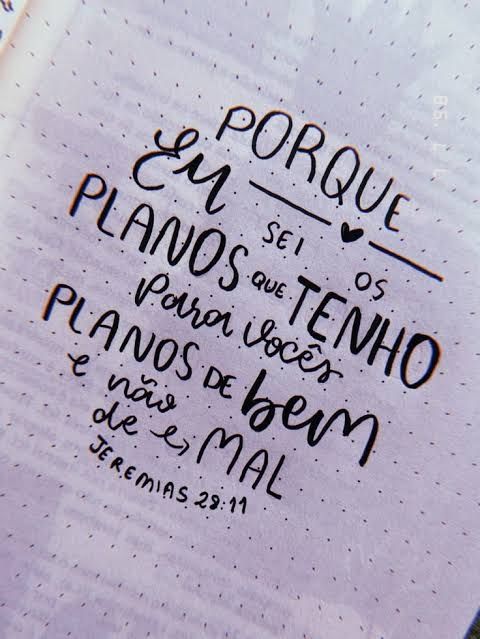 PORQUE
Eu
SEI OS
PLANOS QUE TENHO
para vocês
PLANOS DE bem
e não
de e, MAL
JEREMIAS 29:11